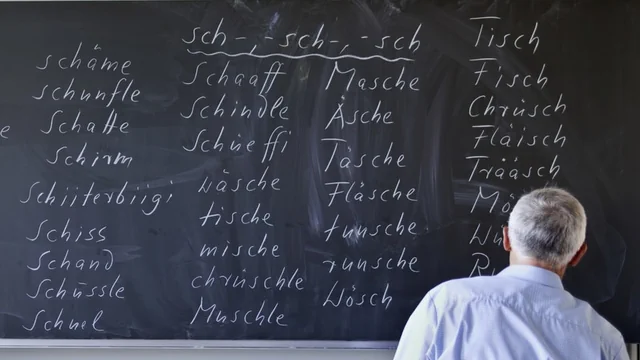 sch-, -sch-, -sch
schäme
schunfle
Schatte
Schirm
Schiiterbiigi
Schiss
Schand
Schüssle
Schnel
Schaaff
Schindle
Schüeffi
wäsche
tische
mische
chrüschle
Muschle
Masche
Äsche
Täsche
Fläsche
tunsche
runsche
Wösch
Tisch
Fisch
Chrüsch
Fläisch
Trääsch